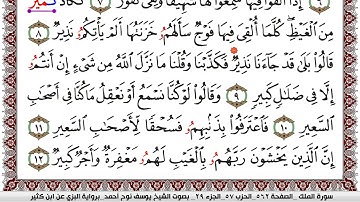 إِذَا أُلْقُوا فِيهَا سَمِعُوا لَهَا شَهِيقًا وَهِيَ تَفُورُ ٧ تَكَادُ تَمَيَّزُ
مِنَ الْغَيْظِ كُلَّمَا أُلْقِيَ فِيهَا فَوْجٌ سَأَلَهُمُ خَزَنَتُهَا أَلَمْ يَأْتِكُمُ نَذِيرٌ ٨
قَالُوا بَلَىٰ قَدْ جَاءَنَا نَذِيرٌ فَكَذَّبْنَا وَقُلْنَا مَا نَزَّلَ اللَّهُ مِن شَيْءٍ إِنْ أَنتُمُ
إِلَّا فِي ضَلَالٍ كَبِيرٍ ٩ وَقَالُوا لَوْ كُنَّا نَسْمَعُ أَوْ نَعْقِلُ مَا كُنَّا فِي أَصْحَابِ
السَّعِيرِ ١٠ فَاعْتَرَفُوا بِذَنبِهِمُ فَسُحْقًا لِّأَصْحَابِ السَّعِيرِ ١١
إِنَّ الَّذِينَ يَخْشَوْنَ رَبَّهُمُ بِالْغَيْبِ لَهُمُ مَغْفِرَةٌ وَأَجْرٌ كَبِيرٌ ١٢
سورة الملك _الصفحة ٥٦٢_ الحزب ٥٧_الجزء ٢٩_ بصوت الشيخ يوسف نوح أحمد _برواية البزي عن ابن كثير